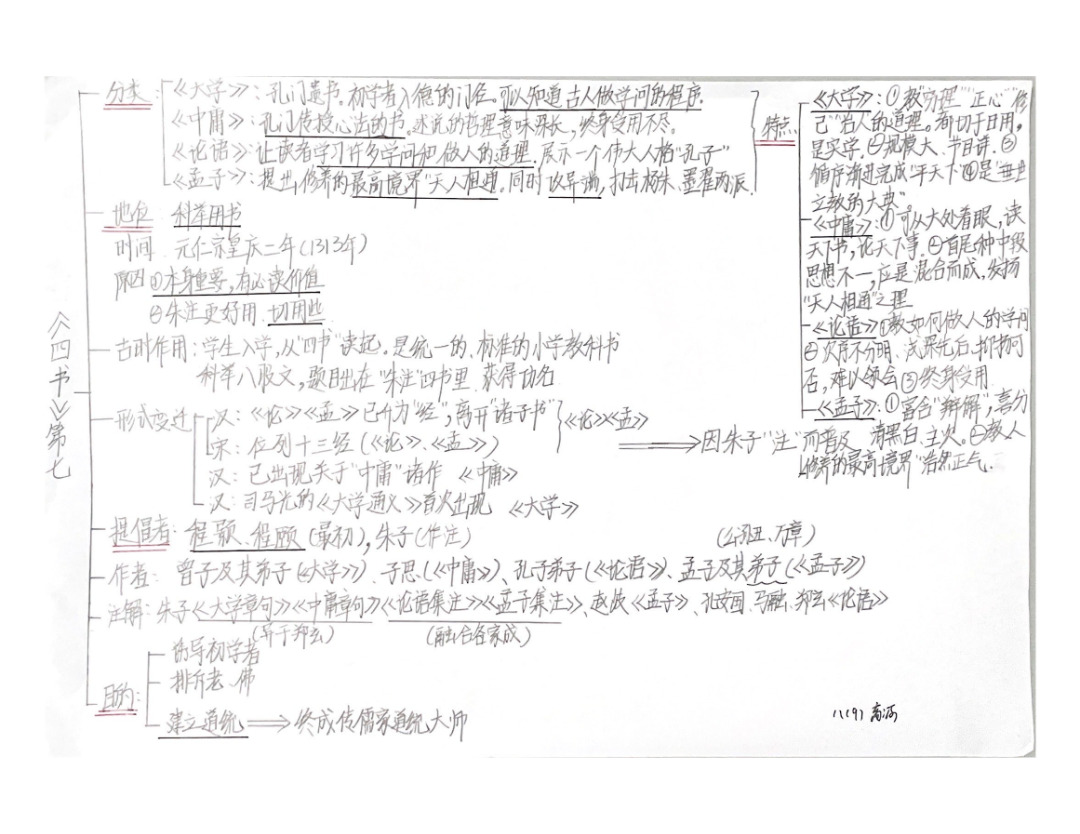 《四书》第七
分类:《大学》:孔门遗书。初学者入德的门径。可以知道古人做学问的程序.
《中庸》:孔门传授心法的书。述说的哲理意味深长,终身受用不尽。
《论语》:让读者学习许多学问和做人的道理.展示一个伟大人格"孔子"
《孟子》:提出修养的最高境界"天人相通".同时故异端,打击杨朱、墨翟两派.
特点
《大学》:①教"穷理""正心""修
己"治人的道理。有切于日用,
是实学.②规模大、节目详.③
循序渐进完成"平天下"④是"垂世
立教的大典"
《中庸》:①可从大处着眼,读
天下书,论天下事.②首尾和中段
思想不一,应是混合而成,发扬
"天人相通"之理
《论语》①教如何做人的学问
②次序不分明、浅深先后、抑扬可
否,难以领会③终身受用
《孟子》:①富含"辩解",喜分
清黑白、主次。②教人
修养的最高境界"浩然正气.
地位:科举用书
时间:元仁宗皇庆二年(1313年)
原因①本身重要,有必读价值
②朱注更好用.切用些
古时作用:学生入学,从"四书"读起.是统一的、标准的小学教科书
科举八股文,题目出在"朱注"四书里.获得功名
形式变迁
汉:《论》《孟》已分为"经",离开"诸子书"
宋:位列十三经(《论》、《孟》)
《论》《孟》
汉:已出现关于"中庸"诸作 《中庸》
汉:司马光的《大学通义》首次出现 《大学》
因朱子"注"而普及
提倡者:程颢、程颐(最初),朱子(作注)
(公孙丑、万章)
作者:曾子及其弟子(《大学》)、子思(《中庸》)、孔子弟子(《论语》)、孟子及其弟子(《孟子》)
注解:朱子《大学章句》《中庸章句》《论语集注》《孟子集注》、赵岐《孟子》、孔安国、马融、郑玄《论语》
(异于郑玄) (融合各家成)
目的:
诱导初学者
排斥老、佛
建立道统 终成传儒家道统大师
八(9)